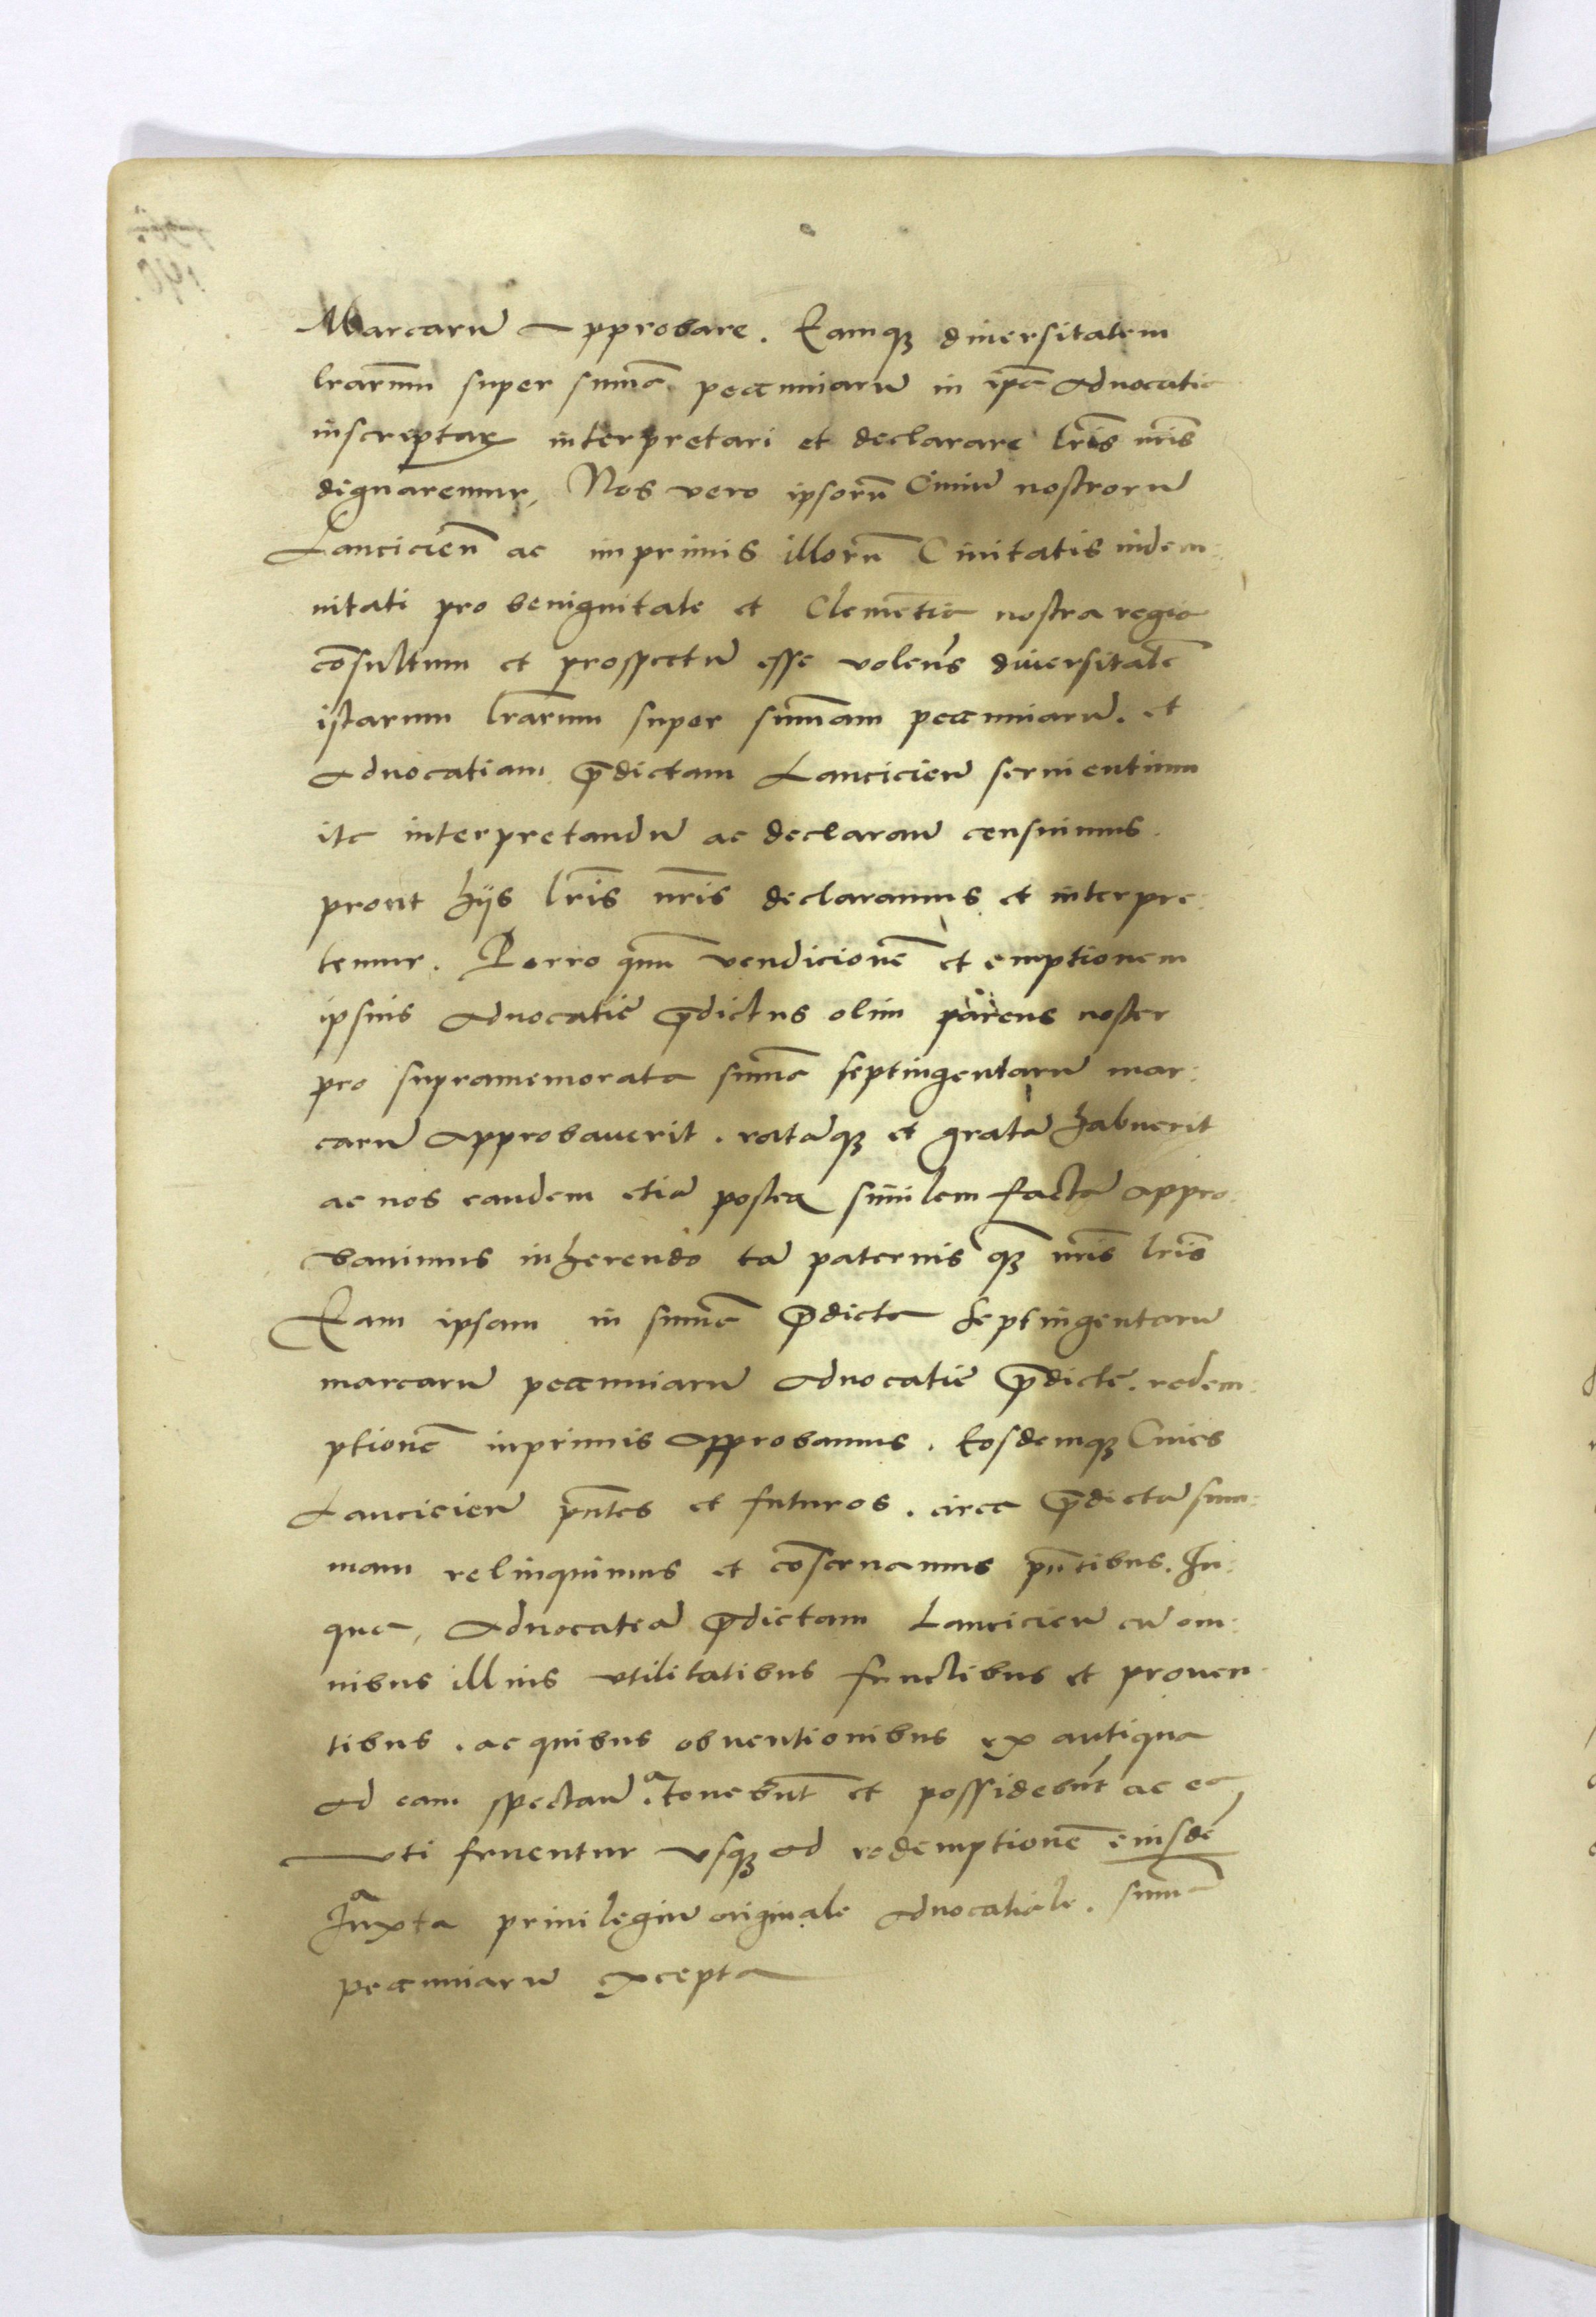 Marcarū approbare. Eamqꝫ diuersitatem
lrārum super sum̄a pecuniarū in ip̄a aduocatia
inscriptaꝝ interpretari et declarare lrīs nrīs
dignaremur, Nos vero ipsorū Ciuiū nostrorū
Lancicień ac imprimis illorū Ciuitatis indem:
nitati pro benignitate et Clemētia nostra regia
cōsultum et prospectū esse volen̄s diuersitatē
istarum lrārum super sum̄am pecuniarū. et
Aduocatiam p̄dictam Lancicień seruientium
ita interpretandū ac declarań censuimus.
prout hijs lrīs nrīs declaramus et interpre:
temur. Porro qūm vendicionē et emptionem
ipsius aduocatie p̄dictus olim parens noster
pro supramemorata sum̄a septingentarū mar:
carū approbauerit. ratāqꝫ et gratā habuerit
ac nos eandem etiā postea similem factā appro:
bauimus inherendo tā paternis qꝫ nrīs lrīs
Eam ipsam in sum̄a p̄dicta septingentarū
marcarū pecuniarū aduocatie p̄dicte. redem:
ptionē inprimis approbamus. Eosdemqꝫ Ciues
Lancicień pn̄tes et futuros. circa p̄dictā sum:
mam relinquimus et cōseruamus pn̄tibus. In:
que, Aduocatiā p̄dictam Lancicień cū om:
nibus illius vtilitatibus fructibus et prouen
tibus. ac quibus obuentionibus ex antiqua
ad eam spectań. a tenebūt et possidebūt ac ea
vti fruentur vsqꝫ ad redemptionē eiusdē
a Iuxta priuilegiū originale aduocatiale. sum̄a
pecuniarū excepta